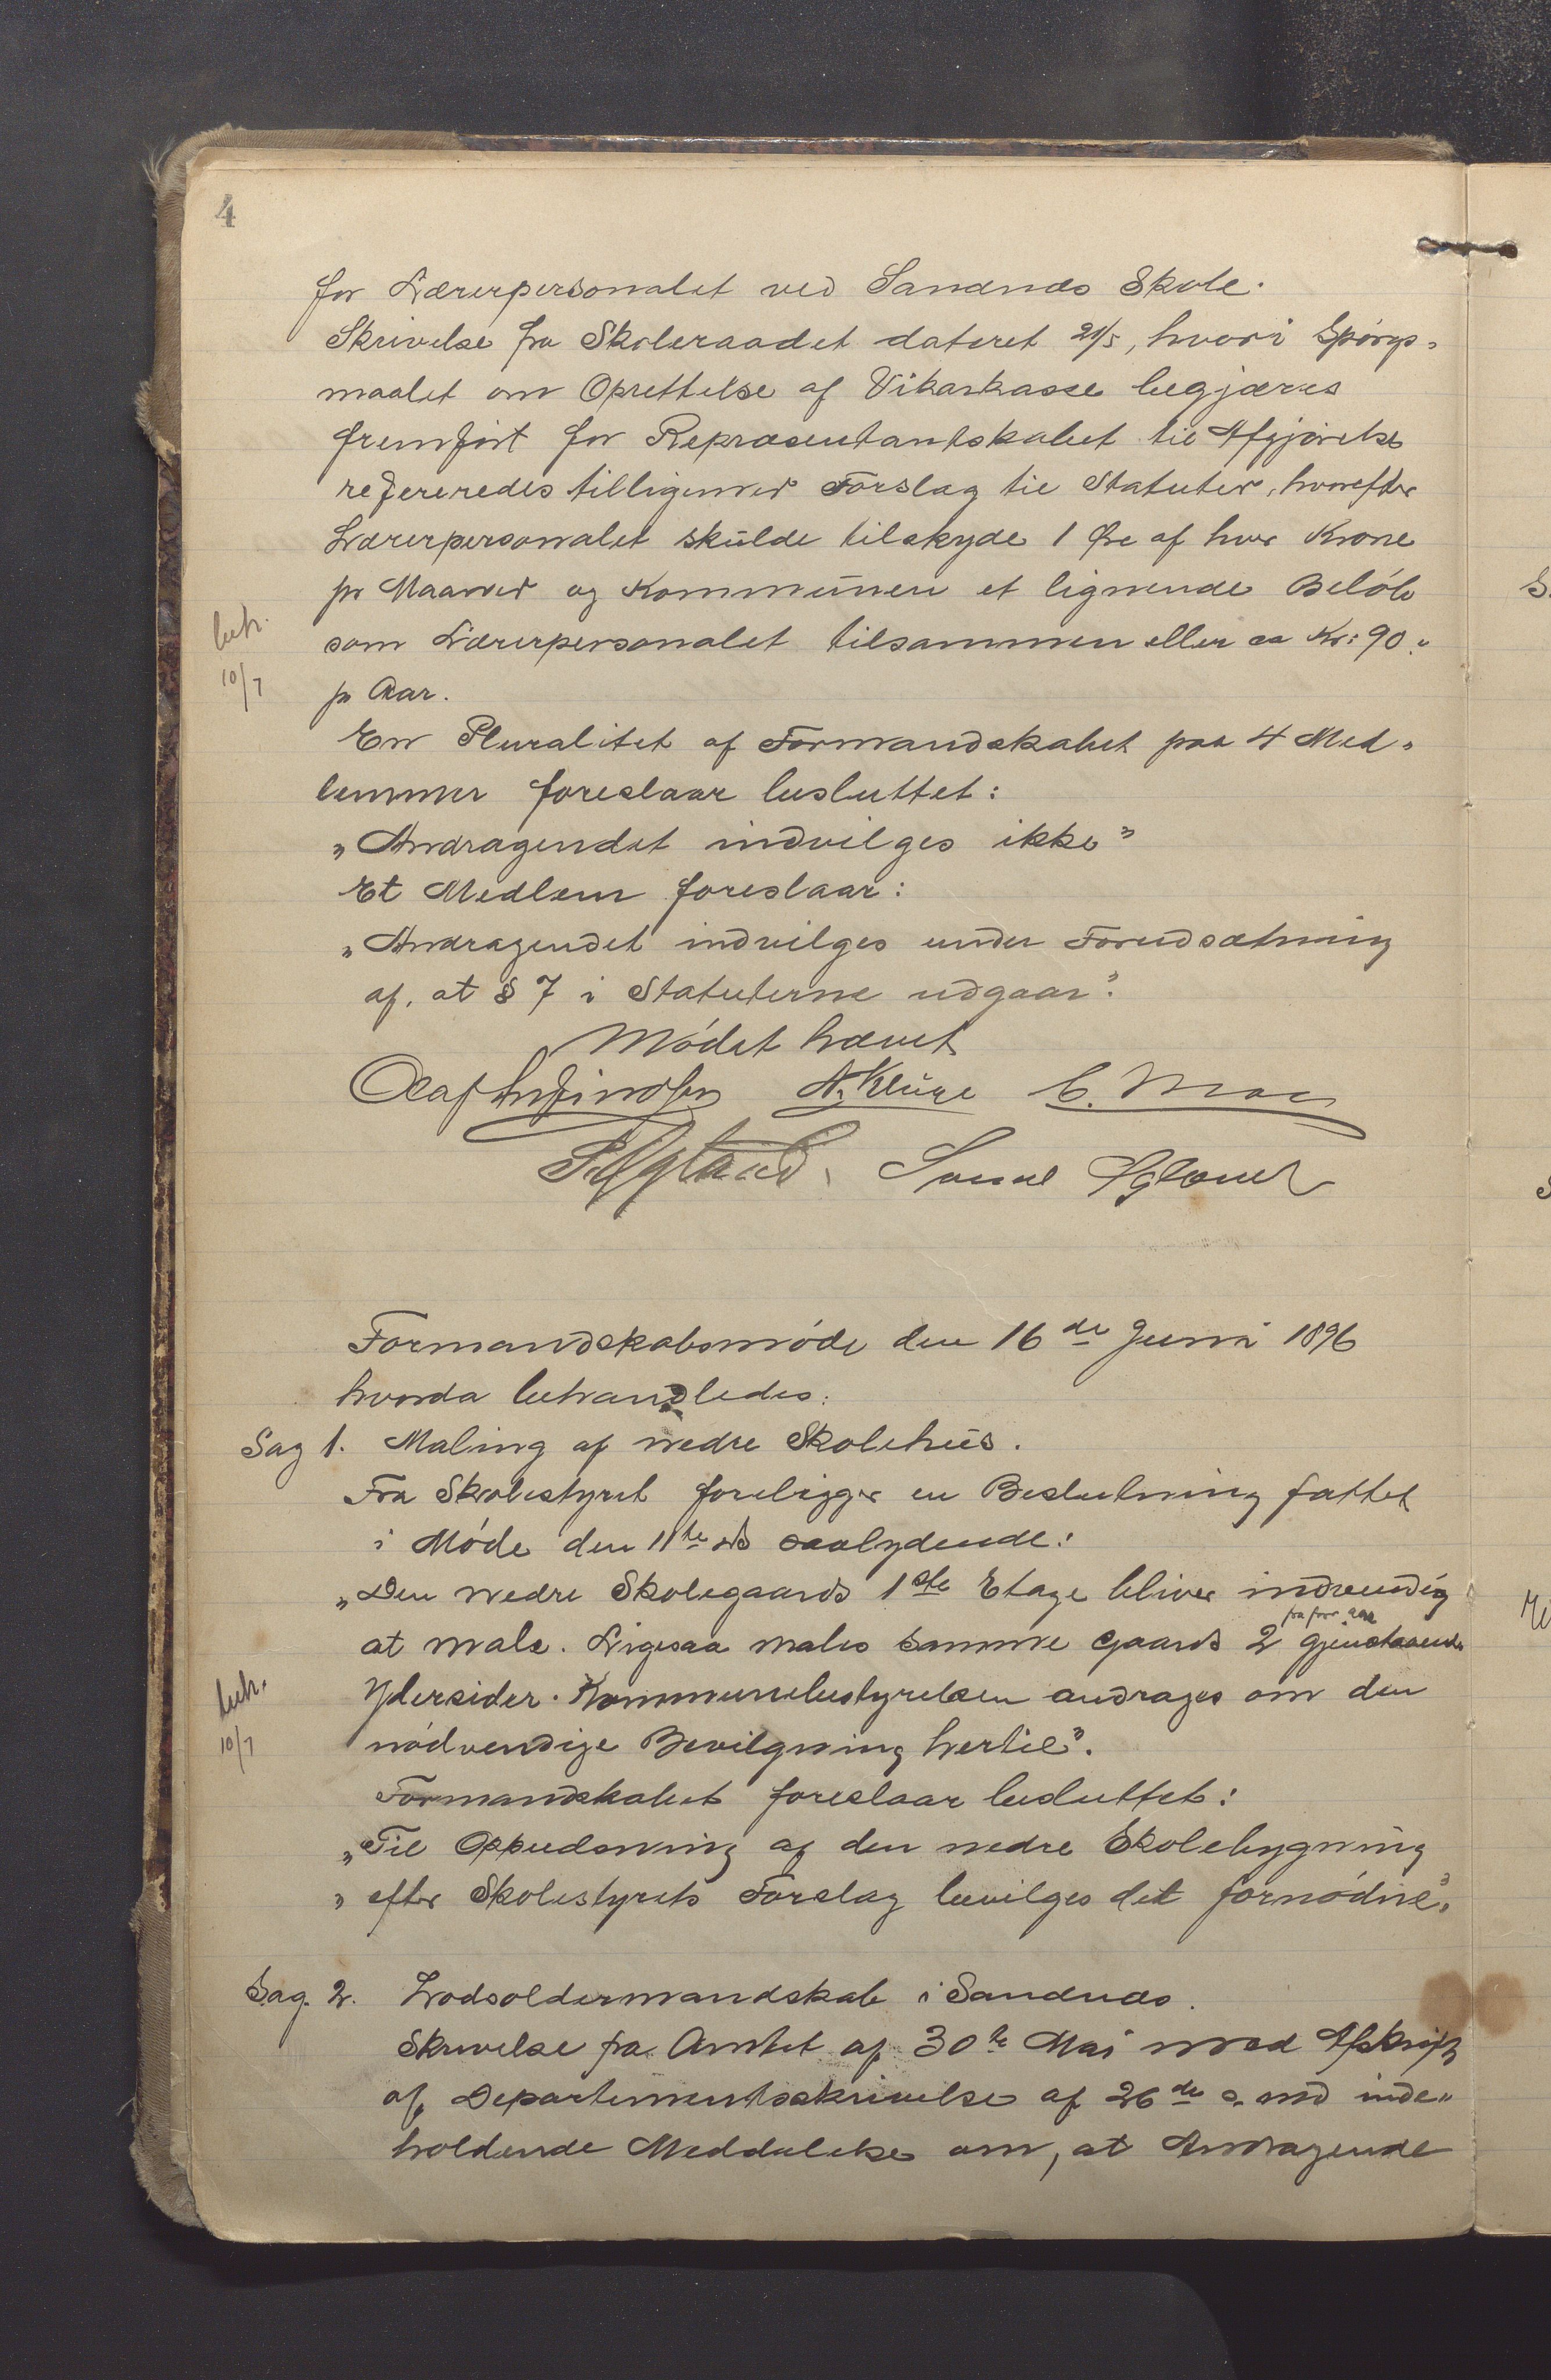 4
for Lærerpersonalet ved Sandnæs Skole.
Skrivelse fra Skoleraadet dateret 21/5, hvori Spörgs-
maalet om Oprettelse af Vikarkasse begjæres
fremfört for Repræsentantskabet til Afgjörelse
refereredes tilligemed Forslag til Statuter, hvorefter
Lærerpersonalet skulde tilskyde 1 Øre af hver Krone
pr Maaned og Kommunen et lignende Belöb
beh.
som Lærerpersonalet tilsammen eller ca Kr: 90.-
10/7
pr Aar.
En Pluralitet af Formandskabet paa 4 Med-
lemmer foreslaar besluttet:
"Andragendet indvilges ikke"
Et Medlem foreslaar:
"Andragendet indvilges under Forudsætning
af, at § 7 i Statuterne udgaar".
Mödet hævet
A. Kluge
Formandskabsmöde den 16de Juni 1896
hvorda behandledes:
Sag 1. Maling af nedre Skolehus.
Fra Skolestyret foreligger en Beslutning fattet
i Möde den 11te ds saalydende:
"Den nedre Skolegaards 1ste Etage bliver indvendig
fra forr. Aar
at male. Ligesaa males samme Gaards 2 gjenstaaende
beh.
Ydersider. Kommunebestyrelsen andrages om den
10/7
nödvendige Bevilgning hertil".
Formandskabet foreslaar besluttet:
"Til Oppudsning af den nedre Skolebygning
" efter Skolestyrets Forslag bevilges det fornödne".
Sag. 2. Lodsoldermandskab i Sandnæs.
Skrivelse fra Amtet af 30te Mai med Afskrift
af Departementsskrivelse af 26de s. md inde-
holdende Meddelelse om, at Andragende